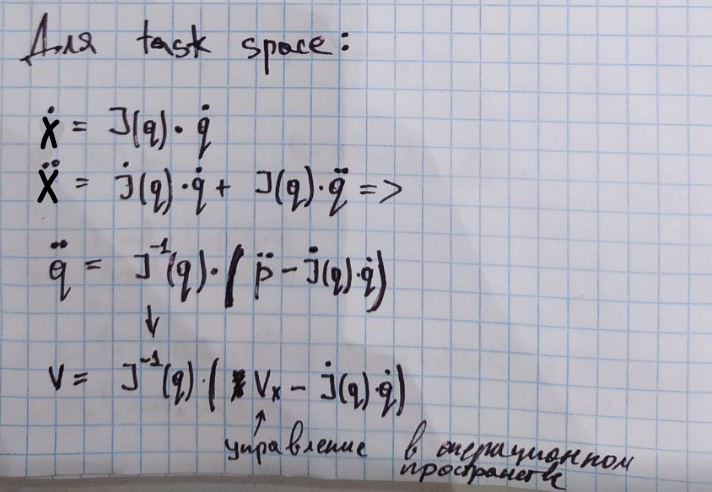 Для task space:
ẋ = J(q)·q̇
ẍ = J̇(q)·q̇ + J(q)·q̈ =>
q̈ = J⁻¹(q)·(p̈ - J̇(q)·q̇)
↓
v = J⁻¹(q)·(Vₓ - J̇(q)·q̇)
↑
управление в операционном
пространстве